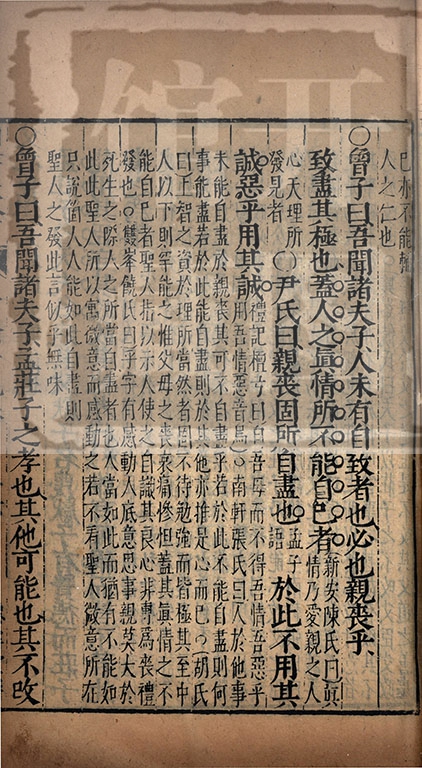 巳亦不能輔
人之仁也
○曾子曰吾聞諸夫子人未有自致者也必也親喪乎
致盡其極也蓋人之眞情所不能自已者新安陳氏曰眞
情乃愛親之人
心天理所
發見者○尹氏曰親喪固所自盡也孟子
語於此不用其
誠惡乎用其誠禮記檀弓曰自吾母而不得吾情吾惡乎
用吾情惡音烏○南軒張氏曰人於他事
未能自盡於親喪其可不自盡乎若於此不能自盡則何
事能盡若於此能自盡則於其他亦推是心而已○胡氏
曰上智之資於理所當然者固不待勉強而皆極其至中
人以下則罕能之惟父母之喪哀痛慘怛蓋其眞情之不
能自已者聖人指以示人使之自識其良心非專爲喪禮
發也○雙峯饒氏曰乎字有感動人底意思事親莫大於
死生之際人之所當自盡者也人當如此而猶有不能如
此此聖人所以寓微意而感動之若不看聖人微意所在
只說箇人人能如此自盡則
聖人之發此言似乎無味
○曾子曰吾聞諸夫子孟莊子之孝也其他可能也其不改